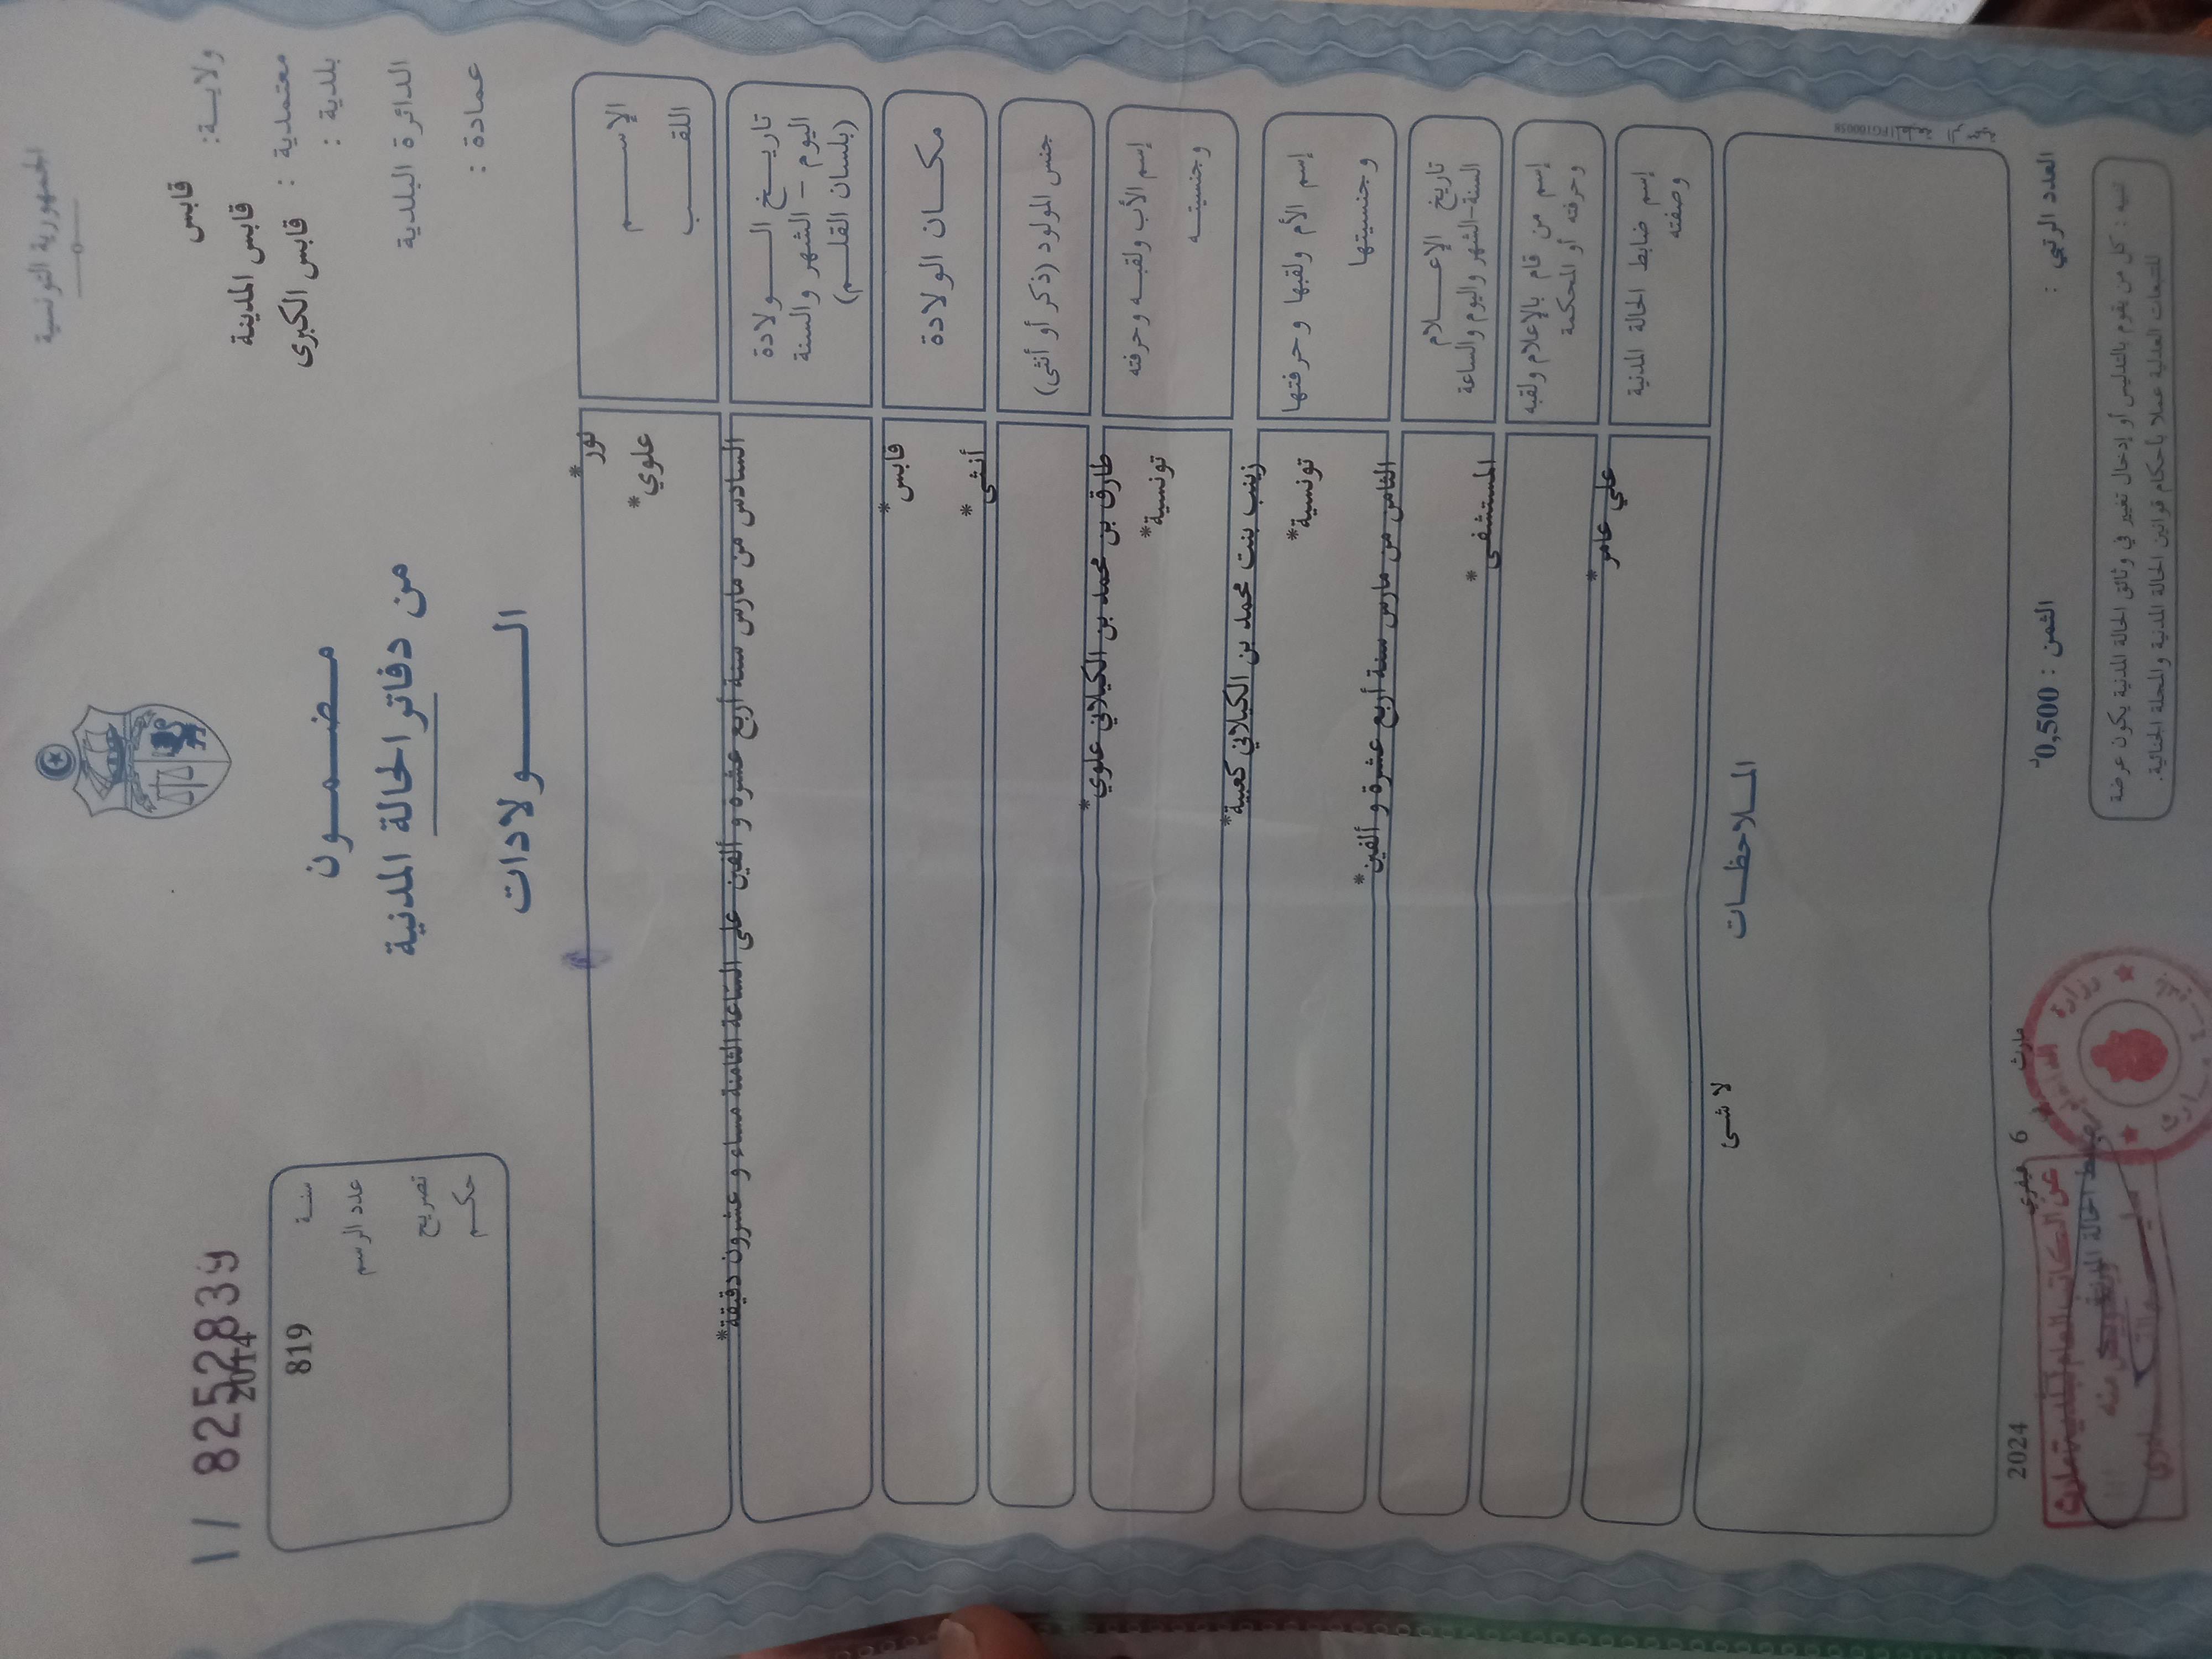 الجمهورية التونسية
ولايـــة: قابس
معتمدية : قابس المدينة
بلدية : قابس الكبرى
الدائرة البلدية
عمادة :
مـضـمـــون
من دفاتر الحالة المدنية
الـــولادات
11 8252839
2014
سنــة
819
عدد الرسم
تصريح
حكــم
الإســـــم
نور*
اللقـــــب
علوي*
تاريـــخ الـــــولادة
اليوم - الشهر والسنة
(بلسان القلـــم)
السادس من مارس سنة أربع عشرة و ألفين على الساعة الثامنة مساء و عشرون دقيقة*
مكـــان الولادة
قابس*
جنس المولود (ذكر أو أنثى)
أنثى*
إسم الأب ولقبـه وحرفته
وجنسيتــه
طارق بن محمد بن الكيلاني علوي*
تونسية*
إسم الأم ولقبها وحرفتها
وجنسيتها
زينب بنت محمد بن الكيلاني كعبية*
تونسية*
تاريخ الإعــــلام
السنة-الشهر واليوم والساعة
الثامن من مارس سنة أربع عشرة و ألفين*
إسم من قام بالإعلام ولقبه
وحرفته أو المحكمة
المستشفى*
إسم ضابط الحالة المدنية
وصفته
علي عامر*
المـلاحظـــات
لا شئ
مارث
6 فيفري 2024
وزارة الداخلية
عن الكاتب العام لبلدية مارث
ضابط الحالة المدنية
العدد الرتبي :
الثمن : 0,500د
تنبيه : كل من يقوم بالتدليس أو إدخال تغيير في وثائق الحالة المدنية يكون عرضة
للتتبعات العدلية عملا بأحكام قوانين الحالة المدنية والمجلة الجنائية.